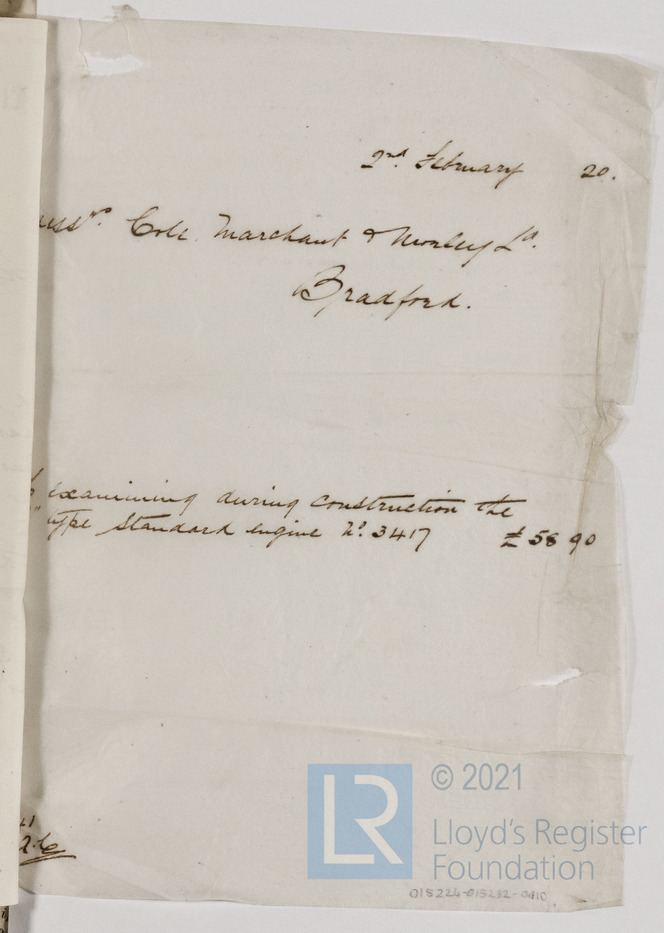 2nd February 20.
essrs. Cole. Marchant & Morley Ld.
Bradford.
examining during construction the
" type Standard engine No. 3417 £58 9 0
LR © 2021
Lloyd's Register
Foundation
015224-015232-0410